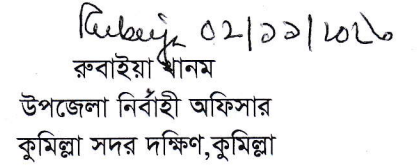 ০২/১১/২০২০
রুবাইয়া খানম
উপজেলা নির্বাহী অফিসার
কুমিল্লা সদর দক্ষিণ,কুমিল্লা